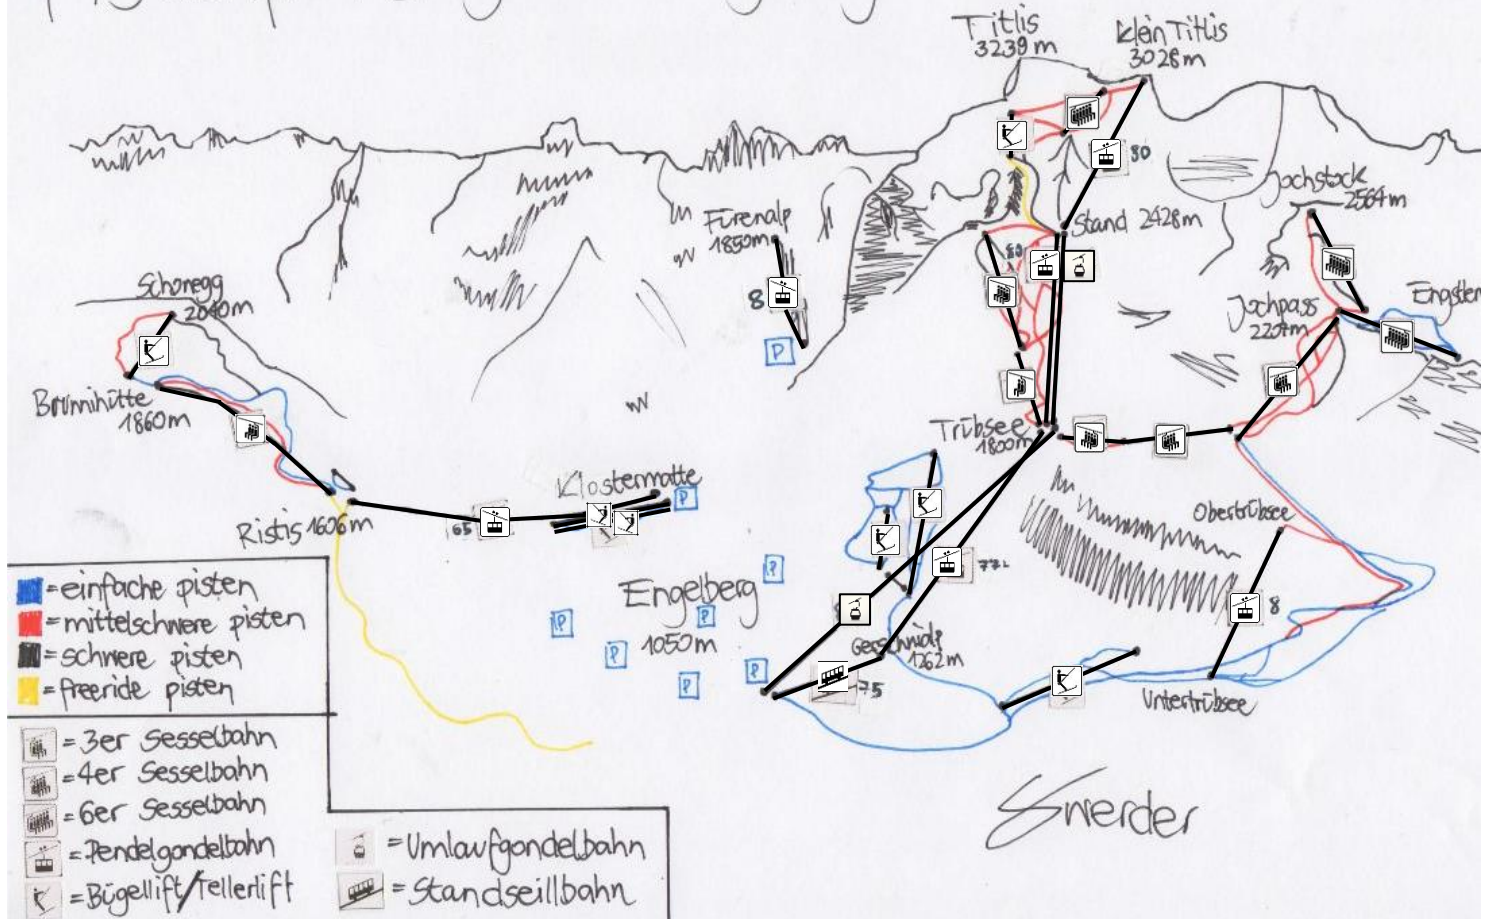 Titlis
3239m
Klein Titlis
3028m
80
Jochstock
2564m
Fürenalp
1850m
Stand 2428m
80
8
P
Schonegg
2040m
Jochpass
Engstlen
Brunnihütte
1860m
Trübsee
1800m
Klostermatte
P
Ristis 1606m
65
Obertrübsee
P
Engelberg
1050m
P
P
P
P
P
8
Gerschnialp
1262m
75
Untertrübsee
= einfache pisten
= mittelschwere pisten
= schwere pisten
= freeride pisten
= 3er Sesselbahn
= 4er Sesselbahn
= 6er Sesselbahn
= Pendelgondelbahn
= Bügellift/Tellerlift
= Umlaufgondelbahn
= Standseillbahn
Swerder